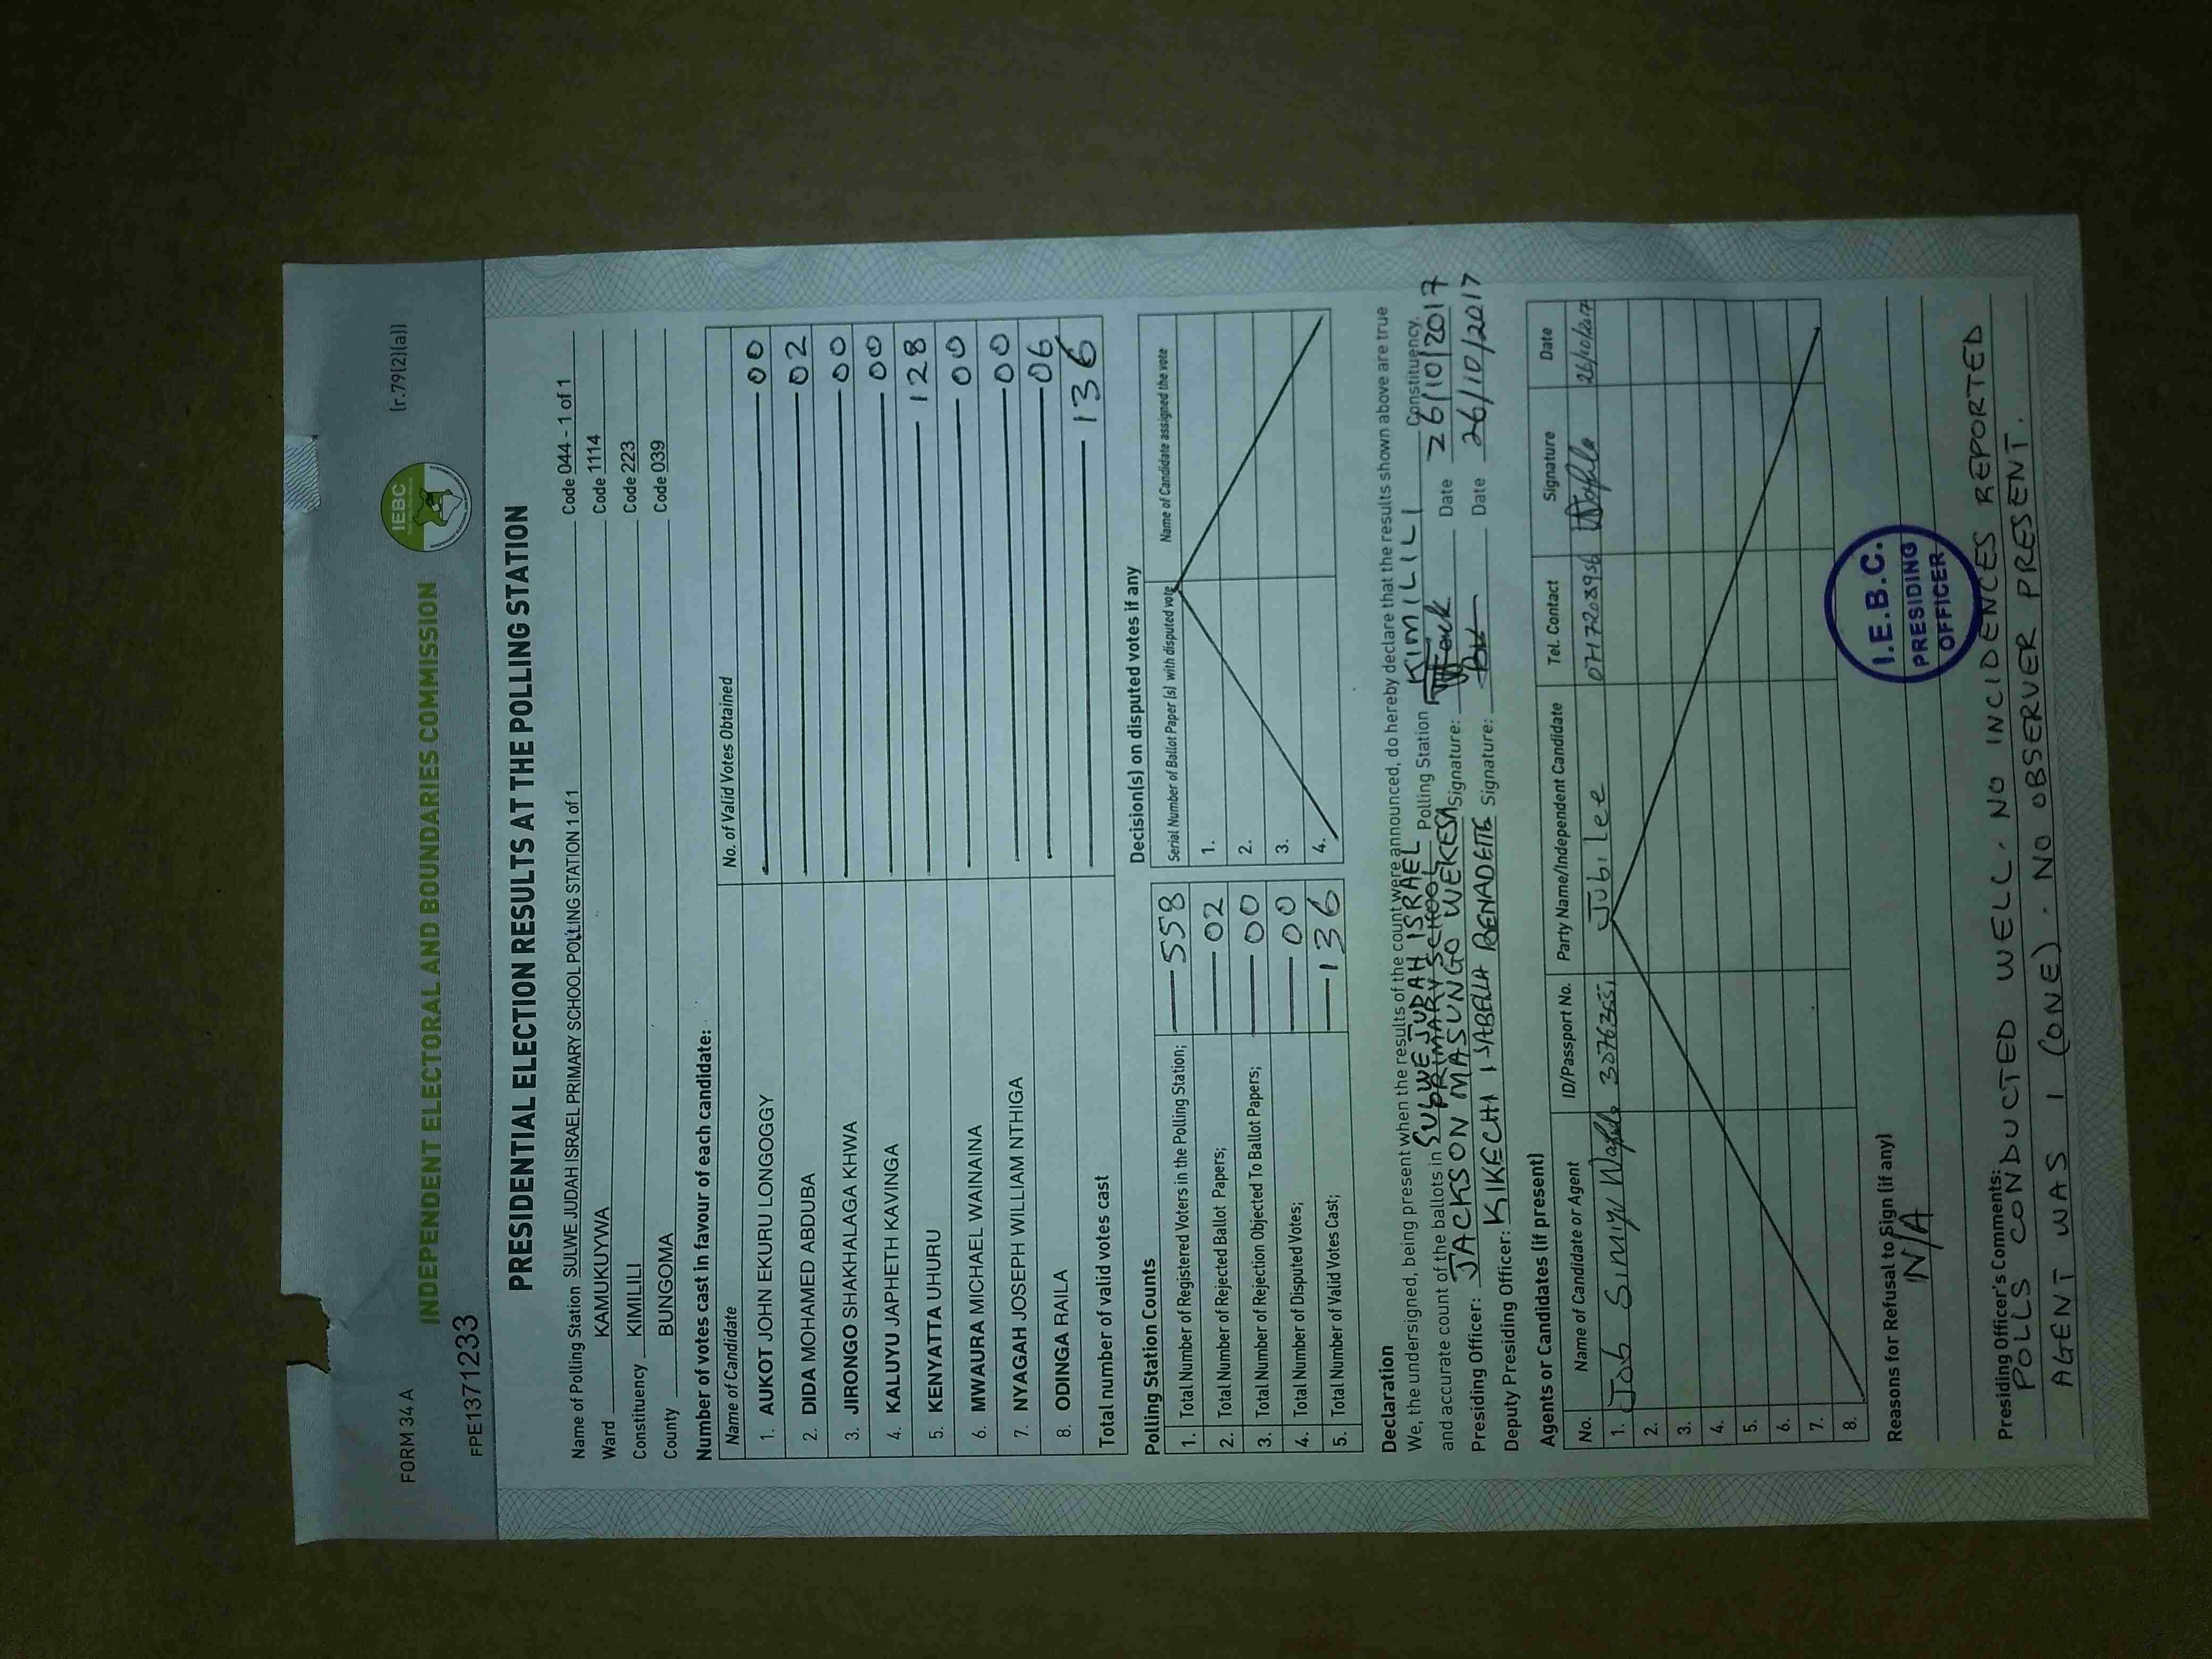 FORM 34 A
[r.79(2)(a)]
INDEPENDENT ELECTORAL AND BOUNDARIES COMMISSION
IEBC
FPE1371233
PRESIDENTIAL ELECTION RESULTS AT THE POLLING STATION
Name of Polling Station SULWE JUDAH ISRAEL PRIMARY SCHOOL POLLING STATION 1 of 1 Code 044 - 1 of 1
Ward KAMUKUYWA Code 1114
Constituency KIMILILI Code 223
County BUNGOMA Code 039
Number of votes cast in favour of each candidate:
Name of Candidate No. of Valid Votes Obtained
1. AUKOT JOHN EKURU LONGOGGY 00
2. DIDA MOHAMED ABDUBA 02
3. JIRONGO SHAKHALAGA KHWA 00
4. KALUYU JAPHETH KAVINGA 00
5. KENYATTA UHURU 128
6. MWAURA MICHAEL WAINAINA 00
7. NYAGAH JOSEPH WILLIAM NTHIGA 00
8. ODINGA RAILA 06
Total number of valid votes cast 136
Polling Station Counts
1. Total Number of Registered Voters in the Polling Station; 558
2. Total Number of Rejected Ballot Papers; 02
3. Total Number of Rejection Objected To Ballot Papers; 00
4. Total Number of Disputed Votes; 00
5. Total Number of Valid Votes Cast; 136
Decision(s) on disputed votes if any
Serial Number of Ballot Paper (s) with disputed vote Name of Candidate assigned the vote
1.
2.
3.
4.
Declaration
We, the undersigned, being present when the results of the count were announced, do hereby declare that the results shown above are true
and accurate count of the ballots in SULWE JUDAH ISRAEL PRIMARY SCHOOL Polling Station KIMILILI Constituency.
Presiding Officer: JACKSON MASUNGO WEKESA Signature: Date 26/10/2017
Deputy Presiding Officer: KIKECHI ISABELLA BENADETE Signature: Date 26/10/2017
Agents or Candidates (if present)
No. Name of Candidate or Agent ID/Passport No. Party Name/Independent Candidate Tel. Contact Signature Date
1. Job Simiyu Wafula Jubilee Wafula 26/10/2017
2.
3.
4.
5.
6.
7.
8.
I.E.B.C.
PRESIDING
OFFICER
Reasons for Refusal to Sign (if any)
N/A
Presiding Officer's Comments:
POLLS CONDUCTED WELL. NO INCIDENCES REPORTED
AGENT WAS 1 (ONE). NO OBSERVER PRESENT.